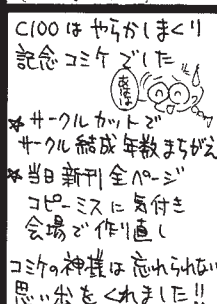 C100は やらかしまくり
記念コミケでした
あはは
★サークルカットで
サークル結成年数まちがえ
★当日新刊全ページ
コピーミスに気付き
会場で作り直し
コミケの神様は忘れられない
思い出をくれました!!